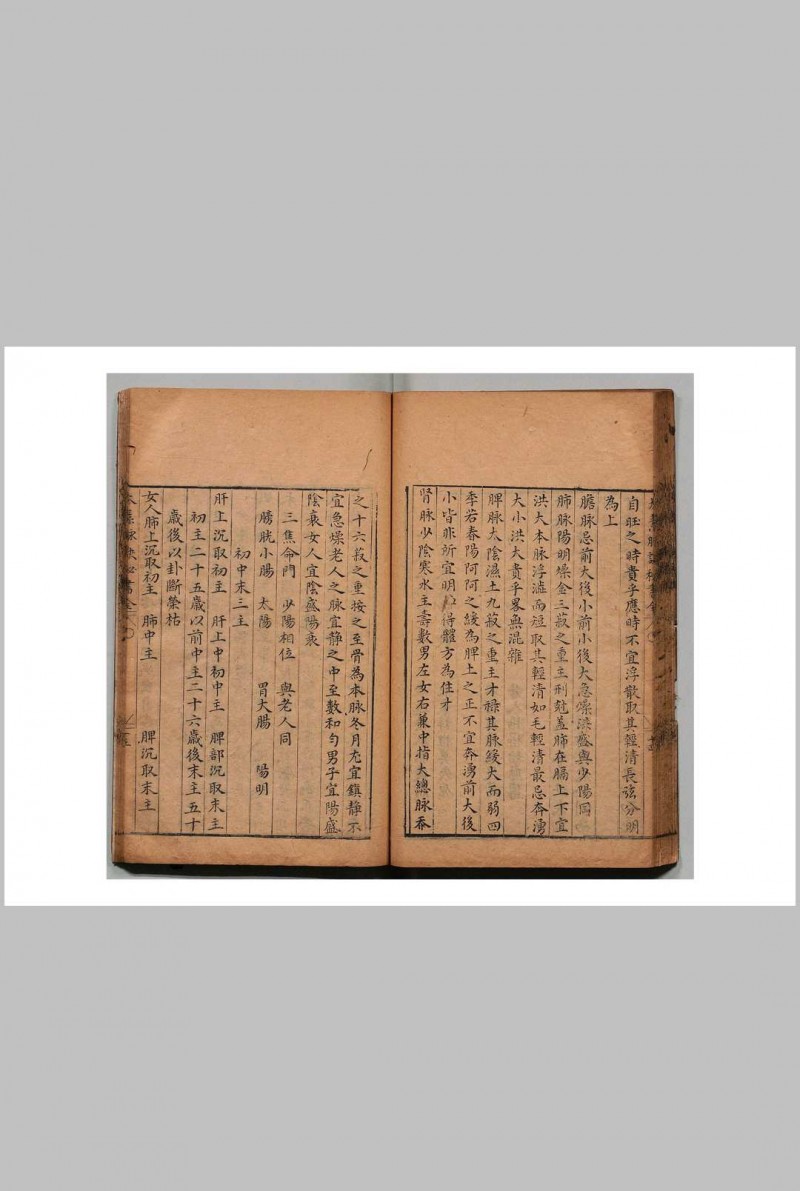 自旺之時貴乎應時不宜浮散取其輕清長弦分明
為上
膽脉忌前大後小前小後大急燥洪盛與少陽同
肺脉陽明燥金三菽之重主刑尅蓋肺在膈上下宜
洪大本脉浮濇而短取其輕清如毛輕清最忌奔湧
大小洪大貴乎畧無混雜
脾脉太陰濕土九菽之重主才祿其脉緩大而弱四
季若春陽阿阿之緩為脾上之正不宜奔湧前大後
小皆非所宜明得體方為佳才
腎脉少陰寒水主壽數男左女右兼中指大總脉看
之十六菽之重按之至骨為本脉冬月尤宜鎮静不
宜急燥老人之脉宜静之中至數和勻男子宜陽盛
陰衰女人宜陰盛陽衰
三焦命門 少陽相位 與老人同
膀胱小腸 太陽 胃大腸 陽明
初中末三主
肝上沉取初主 肝上中初中主 脾部沉取末主
初主二十五歲以前中主二十六歲後末主五十
歲後以卦斷榮枯
女人肺上沉取初主 肺中主 脾沉取末主